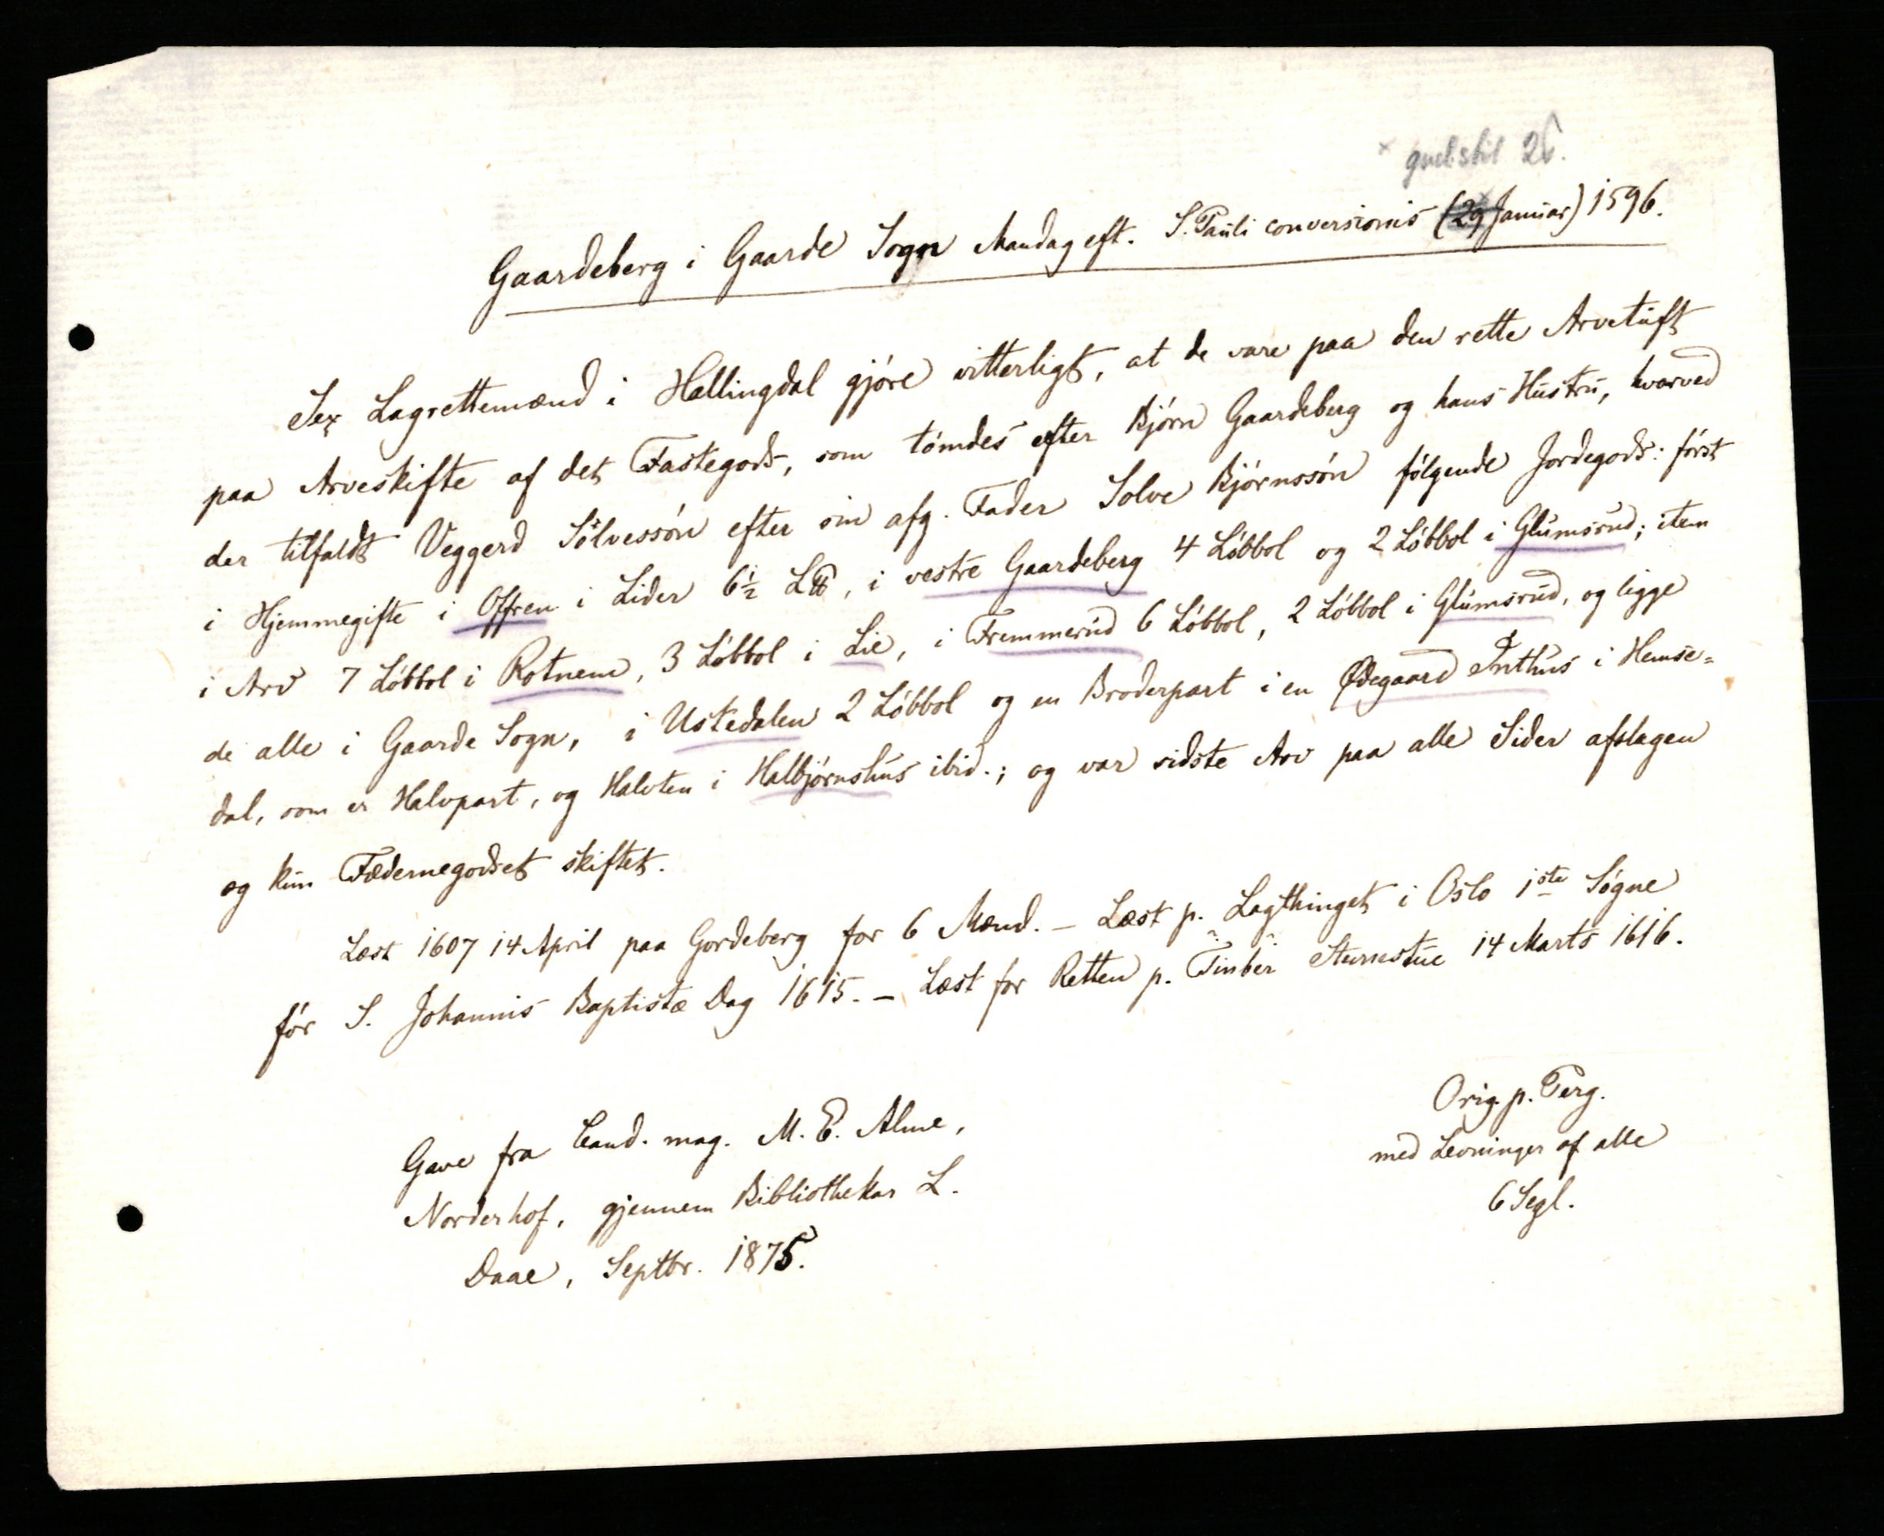 × gml. stil 26.
Gaardeberg i Gaarde Sogn Mandag eft. S. Pauli conversionis (29 Januar) 1596.
Sex Lagrettemænd i Hallingdal gjöre vitterligt, at de vare paa den rette Arvetuft
paa Arveskifte af det Fastegods, som tömdes efter Björn Gaardeberg og hans Hustru, hvorved
der tilfaldt Veggerd Sölvessön efter sin afg. Fader Solve Björnssön fölgende Jordegods: först
i Hjemmegifte i Offren i Lider 6½ L℔, i vestre Gaardeberg 4 Löbbol og 2 Löbbol i Glumsrud; item
i Arv 7 Löbbol i Rotneme, 3 Löbbol i Lie, i Fremmerud 6 Löbbol, 2 Löbbol i Glumsrud, og ligge
de alle i Gaarde Sogn, i Uskedalen 2 Löbbol og en Broderpart i en Ødegaard Inthus i Hemse=
dal, som er Halvpart, og Halvten i Halbjörnshus ibid.; og var sidste Arv paa alle Sider afslagen
og kun Fædernegodset skiftet.
Læst 1607 14 April paa Gordeberg for 6 Mænd. – Læst p. Lagthinget i Oslo 1ste Sögne
för S. Johannis Baptistæ Dag 1615. – Læst for Retten p. Tinber Sturestue 14 Marts 1616.
Gave fra Cand. mag. M. E. Alme,
Norderhof, gjennem Bibliothekar L.
Daae, Septbr. 1875.
Orig. p. Perg.
med Levninger af alle
6 Segl.